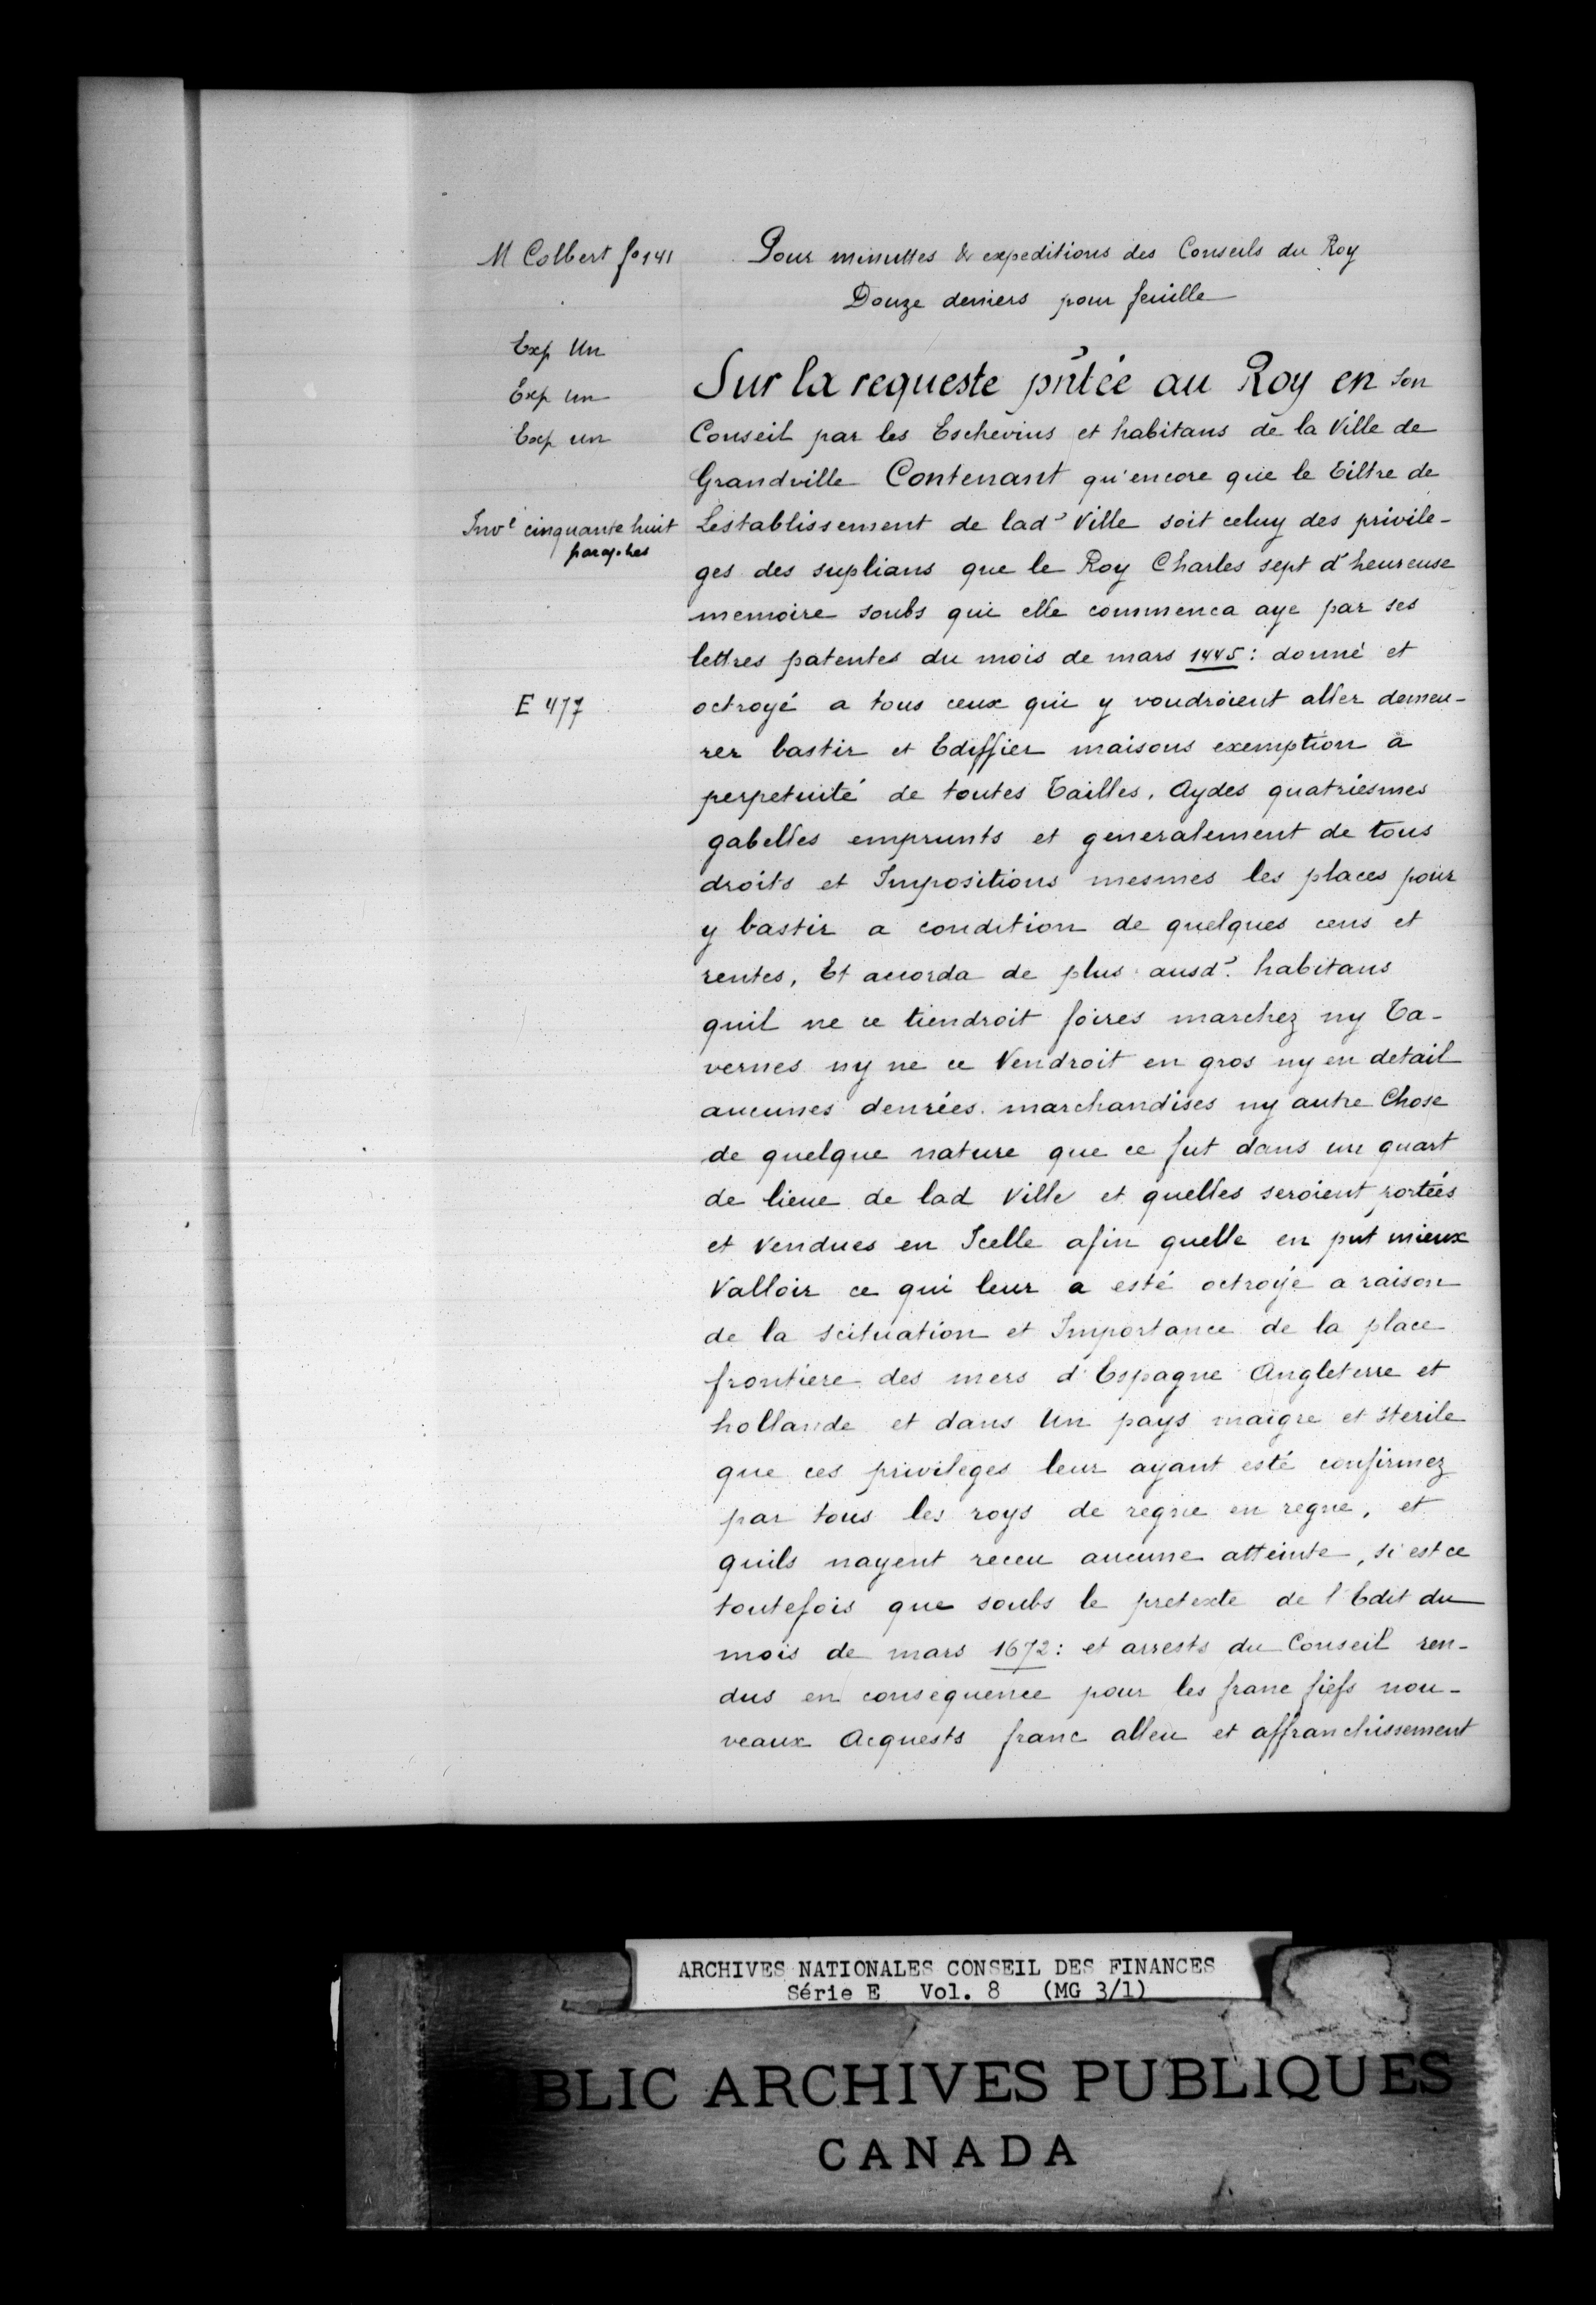 M Colbert fo 141
Pour minuttes & expeditions des Conseils du Roy
Douze deniers pour feuille
Exp Un
Exp un
Exp un
Invé cinquante huit
paraphes
E 477
Sur la requeste pñtée au Roy en son
Conseil par les Eschevins et habitans de la Ville de
Grandville Contenant qu'encore que le tiltre de
Lestablissement de lad' Ville soit celuy des privile-
ges des suplians que le Roy Charles sept d'heureuse
memoire soubs qui elle commenca aye par ses
lettres patentes du mois de mars 1445: donné et
octroyé a tous ceux qui y voudroient aller demeu-
rer bastir et Ediffier maisons exemption a
perpetuité de toutes Tailles, Aydes quatriesmes
gabelles emprunts et generalement de tous
droits et Impositions mesmes les places pour
y bastir a condition de quelques cens et
rentes, Et accorda de plus ausd' habitans
quil ne ce tiendroit foires marchez ny Ta-
vernes ny ne ce Vendroit en gros ny en detail
aucunes denrées marchandises ny autre Chose
de quelque nature que ce fut dans un quart
de lieue de lad Ville et quelles seroient portées
et Vendues en Icelle afin quelle en put mieux
Valloir ce qui leur a esté octroyé a raison
de la scituation et Importance de la place
frontiere des mers d'Espagne Angleterre et
hollande et dans Un pays maigre et sterile
que ces privileges leur ayant esté confirmez
par tous les roys de regne en regne, et
quils nayent receu aucune atteinte, si est ce
toutefois que soubs le pretexte de l'Edit du
mois de mars 1672: et arrests du Conseil ren-
dus en consequence pour les franc fiefs nou-
veaux Acquests franc alleu et affranchissement
ARCHIVES NATIONALES CONSEIL DES FINANCES
Série E Vol. 8 (MG 3/1)
BLIC ARCHIVES PUBLIQUES
CANADA